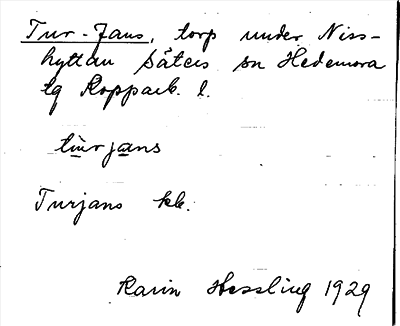 Tur-Jans, torp under Niss-
hyttan Säters sn Hedemora
tg Kopparb. l.
tu̱rja̱ns
Turjans kb.
Karin Hessling 1929